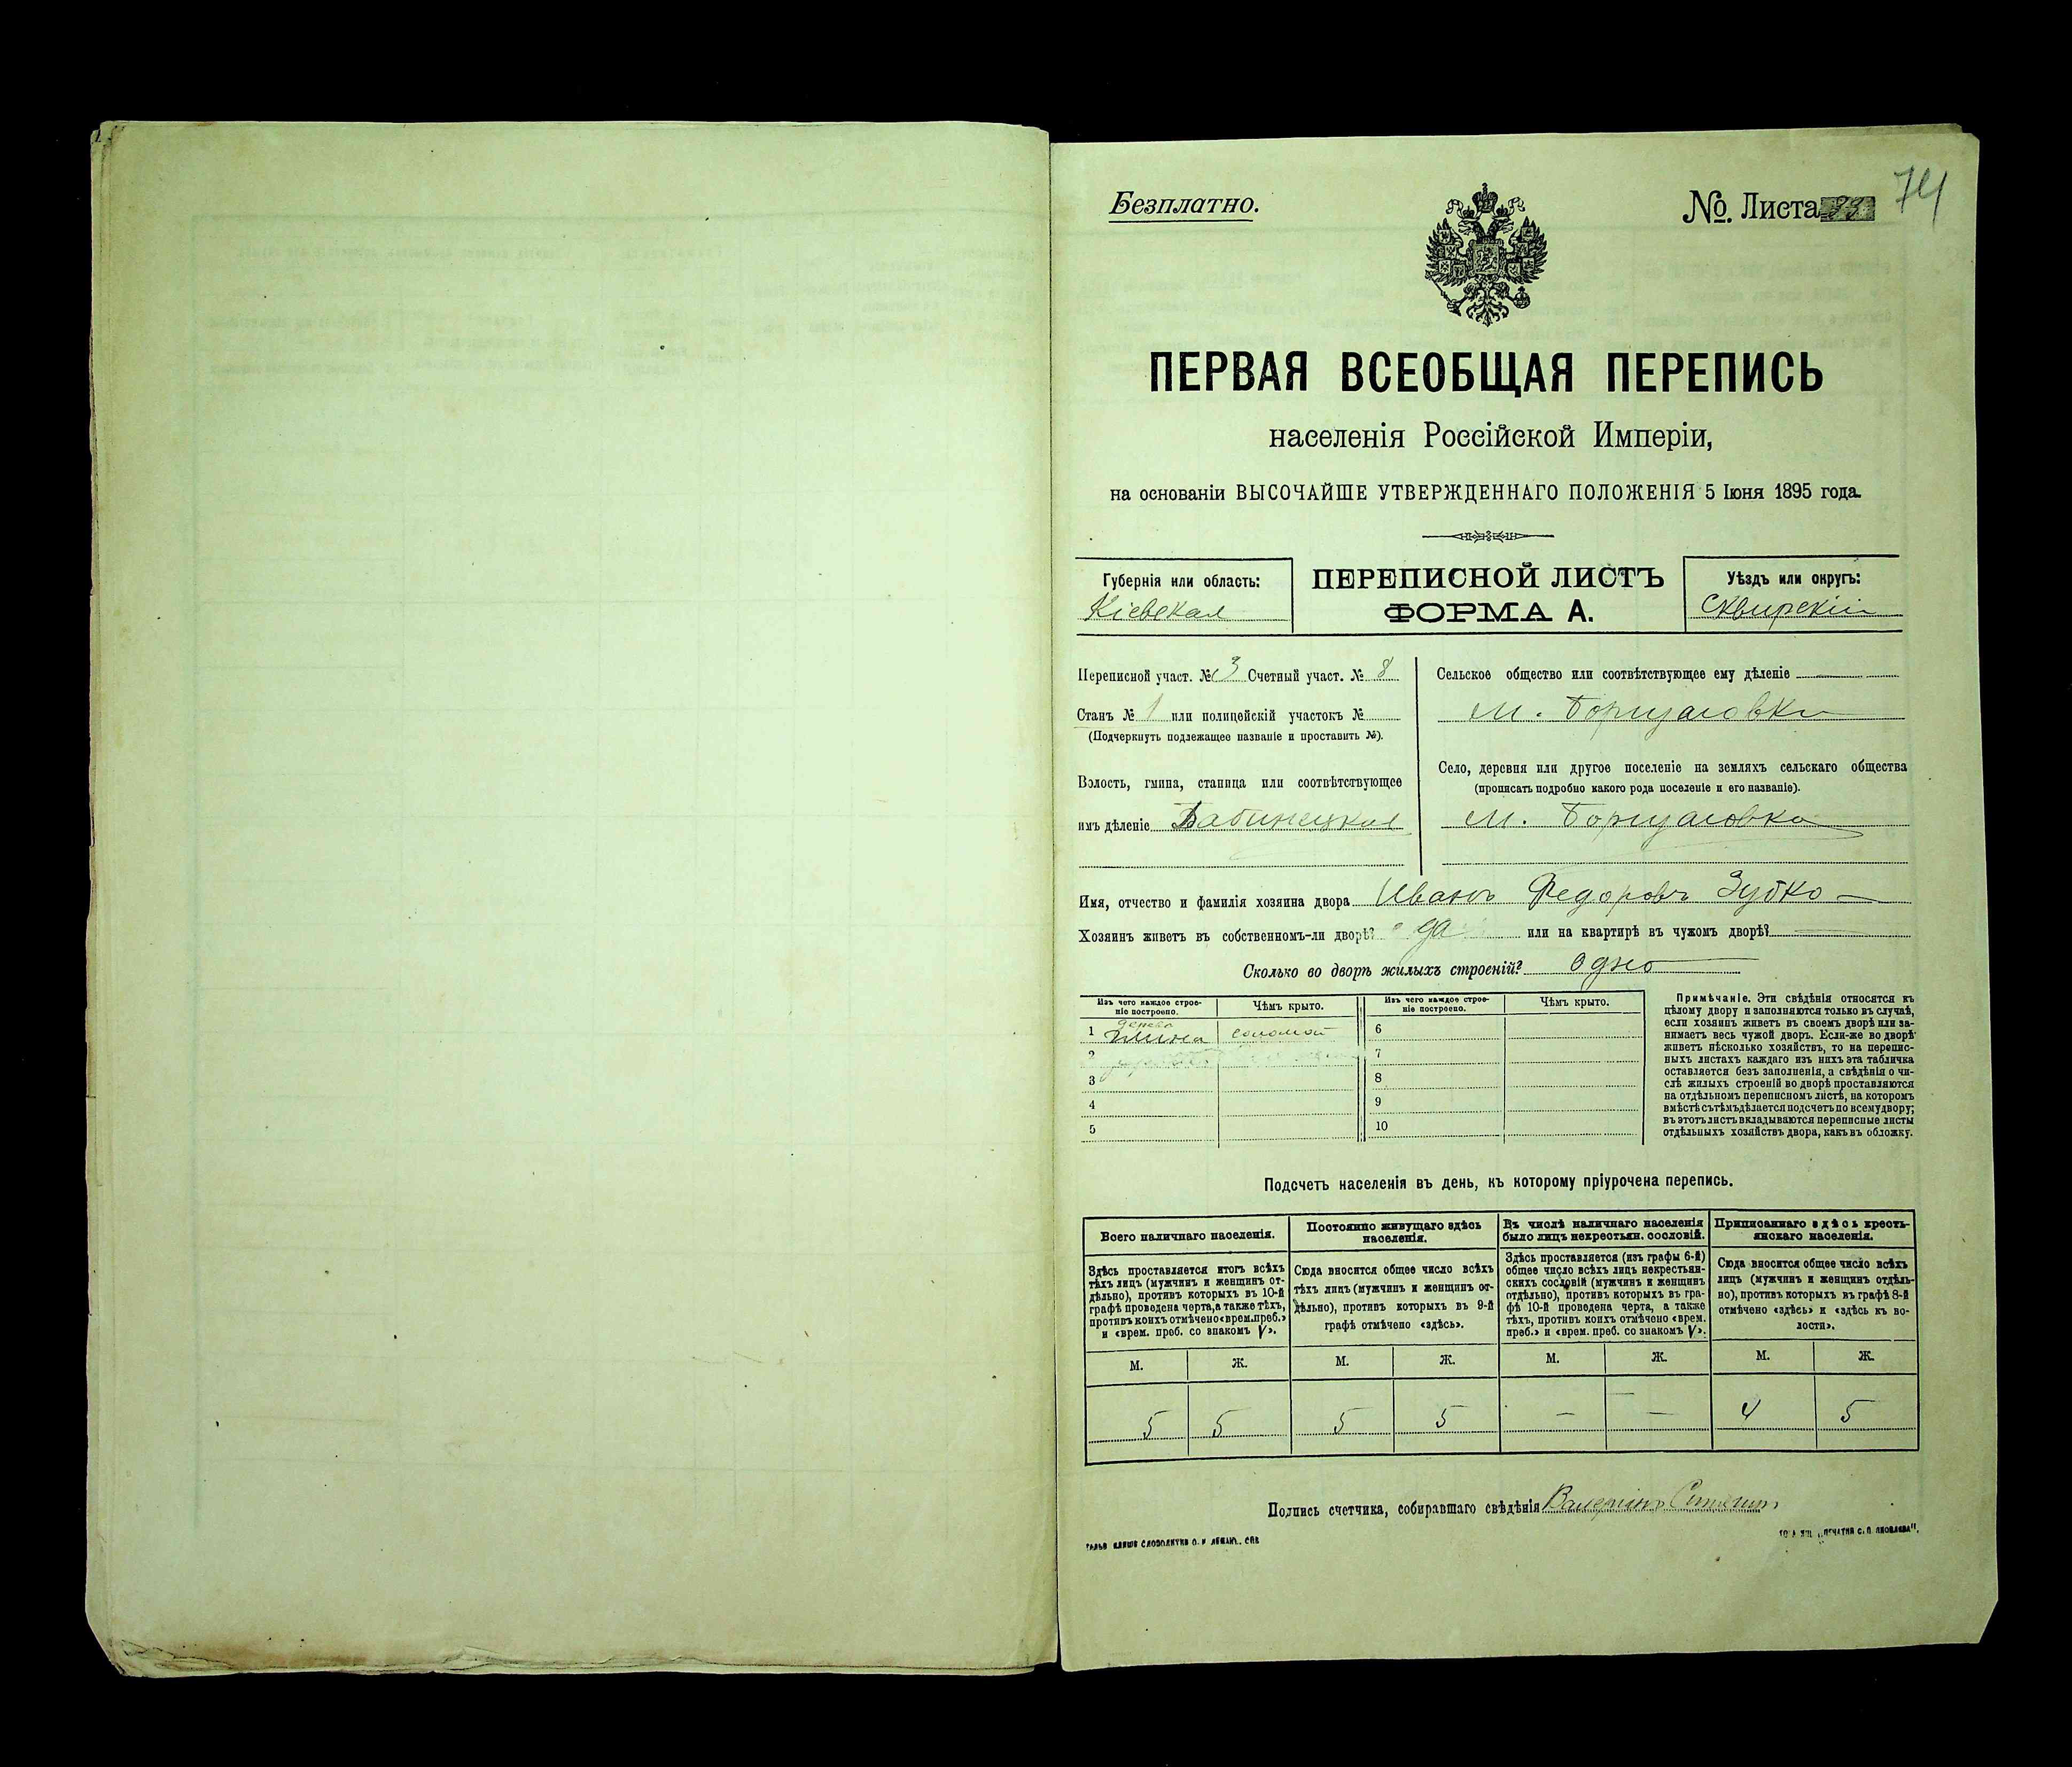 Безплатно.
№. Листа 74
ПЕРВАЯ ВСЕОБЩАЯ ПЕРЕПИСЬ
населенія Россійской Имперіи,
на основаніи ВЫСОЧАЙШЕ УТВЕРЖДЕННАГО ПОЛОЖЕНІЯ 5 Іюня 1895 года.
Губернія или область:
Кіевская
ПЕРЕПИСНОЙ ЛИСТЪ
ФОРМА А.
Уѣздъ или округъ:
Сквирскій
Переписной участ. № 3 Счетный участ. № 8
Станъ № 1 или полицейскій участокъ №
(Подчеркнуть подлежащее названіе и проставить №).
Волость, гмина, станица или соотвѣтствующее
имъ дѣленіе Бабинецкая
Сельское общество или соотвѣтствующее ему дѣленіе
м. Борщаговка
Село, деревня или другое поселеніе на земляхъ сельскаго общества
(прописать подробно какого рода поселеніе и его названіе).
м. Борщаговка
Имя, отчество и фамилія хозяина двора Иванъ Федоровъ Зубко
Хозяинъ живетъ въ собственномъ-ли дворѣ? да или на квартирѣ въ чужомъ дворѣ?
Сколько во дворѣ жилыхъ строеній? одно
Изъ чего каждое строе-
ніе построено.
Чѣмъ крыто.
Изъ чего каждое строе-
ніе построено.
Чѣмъ крыто.
дерево
1 глина соломой 6
2 7
3 8
4 9
5 10
Примѣчаніе. Эти свѣдѣнія относятся къ
цѣлому двору и заполняются только въ случаѣ,
если хозяинъ живетъ въ своемъ дворѣ или за-
нимаетъ весь чужой дворъ. Если-же во дворѣ
живетъ нѣсколько хозяйствъ, то на перепис-
ныхъ листахъ каждаго изъ нихъ эта табличка
оставляется безъ заполненія, а свѣдѣнія о чи-
слѣ жилыхъ строеній во дворѣ проставляются
на отдѣльномъ переписномъ листѣ, на которомъ
вмѣстѣ съ тѣмъ дѣлается подсчетъ по всему двору;
въ этотъ листъ вкладываются переписные листы
отдѣльныхъ хозяйствъ двора, какъ въ обложку.
Подсчетъ населенія въ день, къ которому пріурочена перепись.
Всего наличнаго населенія.
Здѣсь проставляется итогъ всѣхъ
тѣхъ лицъ (мужчинъ и женщинъ от-
дѣльно), противъ которыхъ въ 10-й
графѣ проведена черта, а также тѣхъ,
противъ коихъ отмѣчено «врем. преб.»
и «врем. преб. со знакомъ V».
Постоянно живущаго здѣсь
населенія.
Сюда вносится общее число всѣхъ
тѣхъ лицъ (мужчинъ и женщинъ от-
дѣльно), противъ которыхъ въ 9-й
графѣ отмѣчено «здѣсь».
Въ числѣ наличнаго населенія
было лицъ некрестьян. сословій.
Здѣсь проставляется (изъ графы 6-й)
общее число всѣхъ лицъ некрестьян-
скихъ сословій (мужчинъ и женщинъ
отдѣльно), противъ которыхъ въ гра-
фѣ 10-й проведена черта, а также
тѣхъ, противъ коихъ отмѣчено «врем.
преб.» и «врем. преб. со знакомъ V».
Приписаннаго здѣсь кресть-
янскаго населенія.
Сюда вносится общее число всѣхъ
лицъ (мужчинъ и женщинъ отдѣль-
но), противъ которыхъ въ графѣ 8-й
отмѣчено «здѣсь» и «здѣсь къ во-
лости».
М. Ж. М. Ж. М. Ж. М. Ж.
5 5 5 5 — — 4 5
Подпись счетчика, собиравшаго свѣдѣнія Валеріанъ